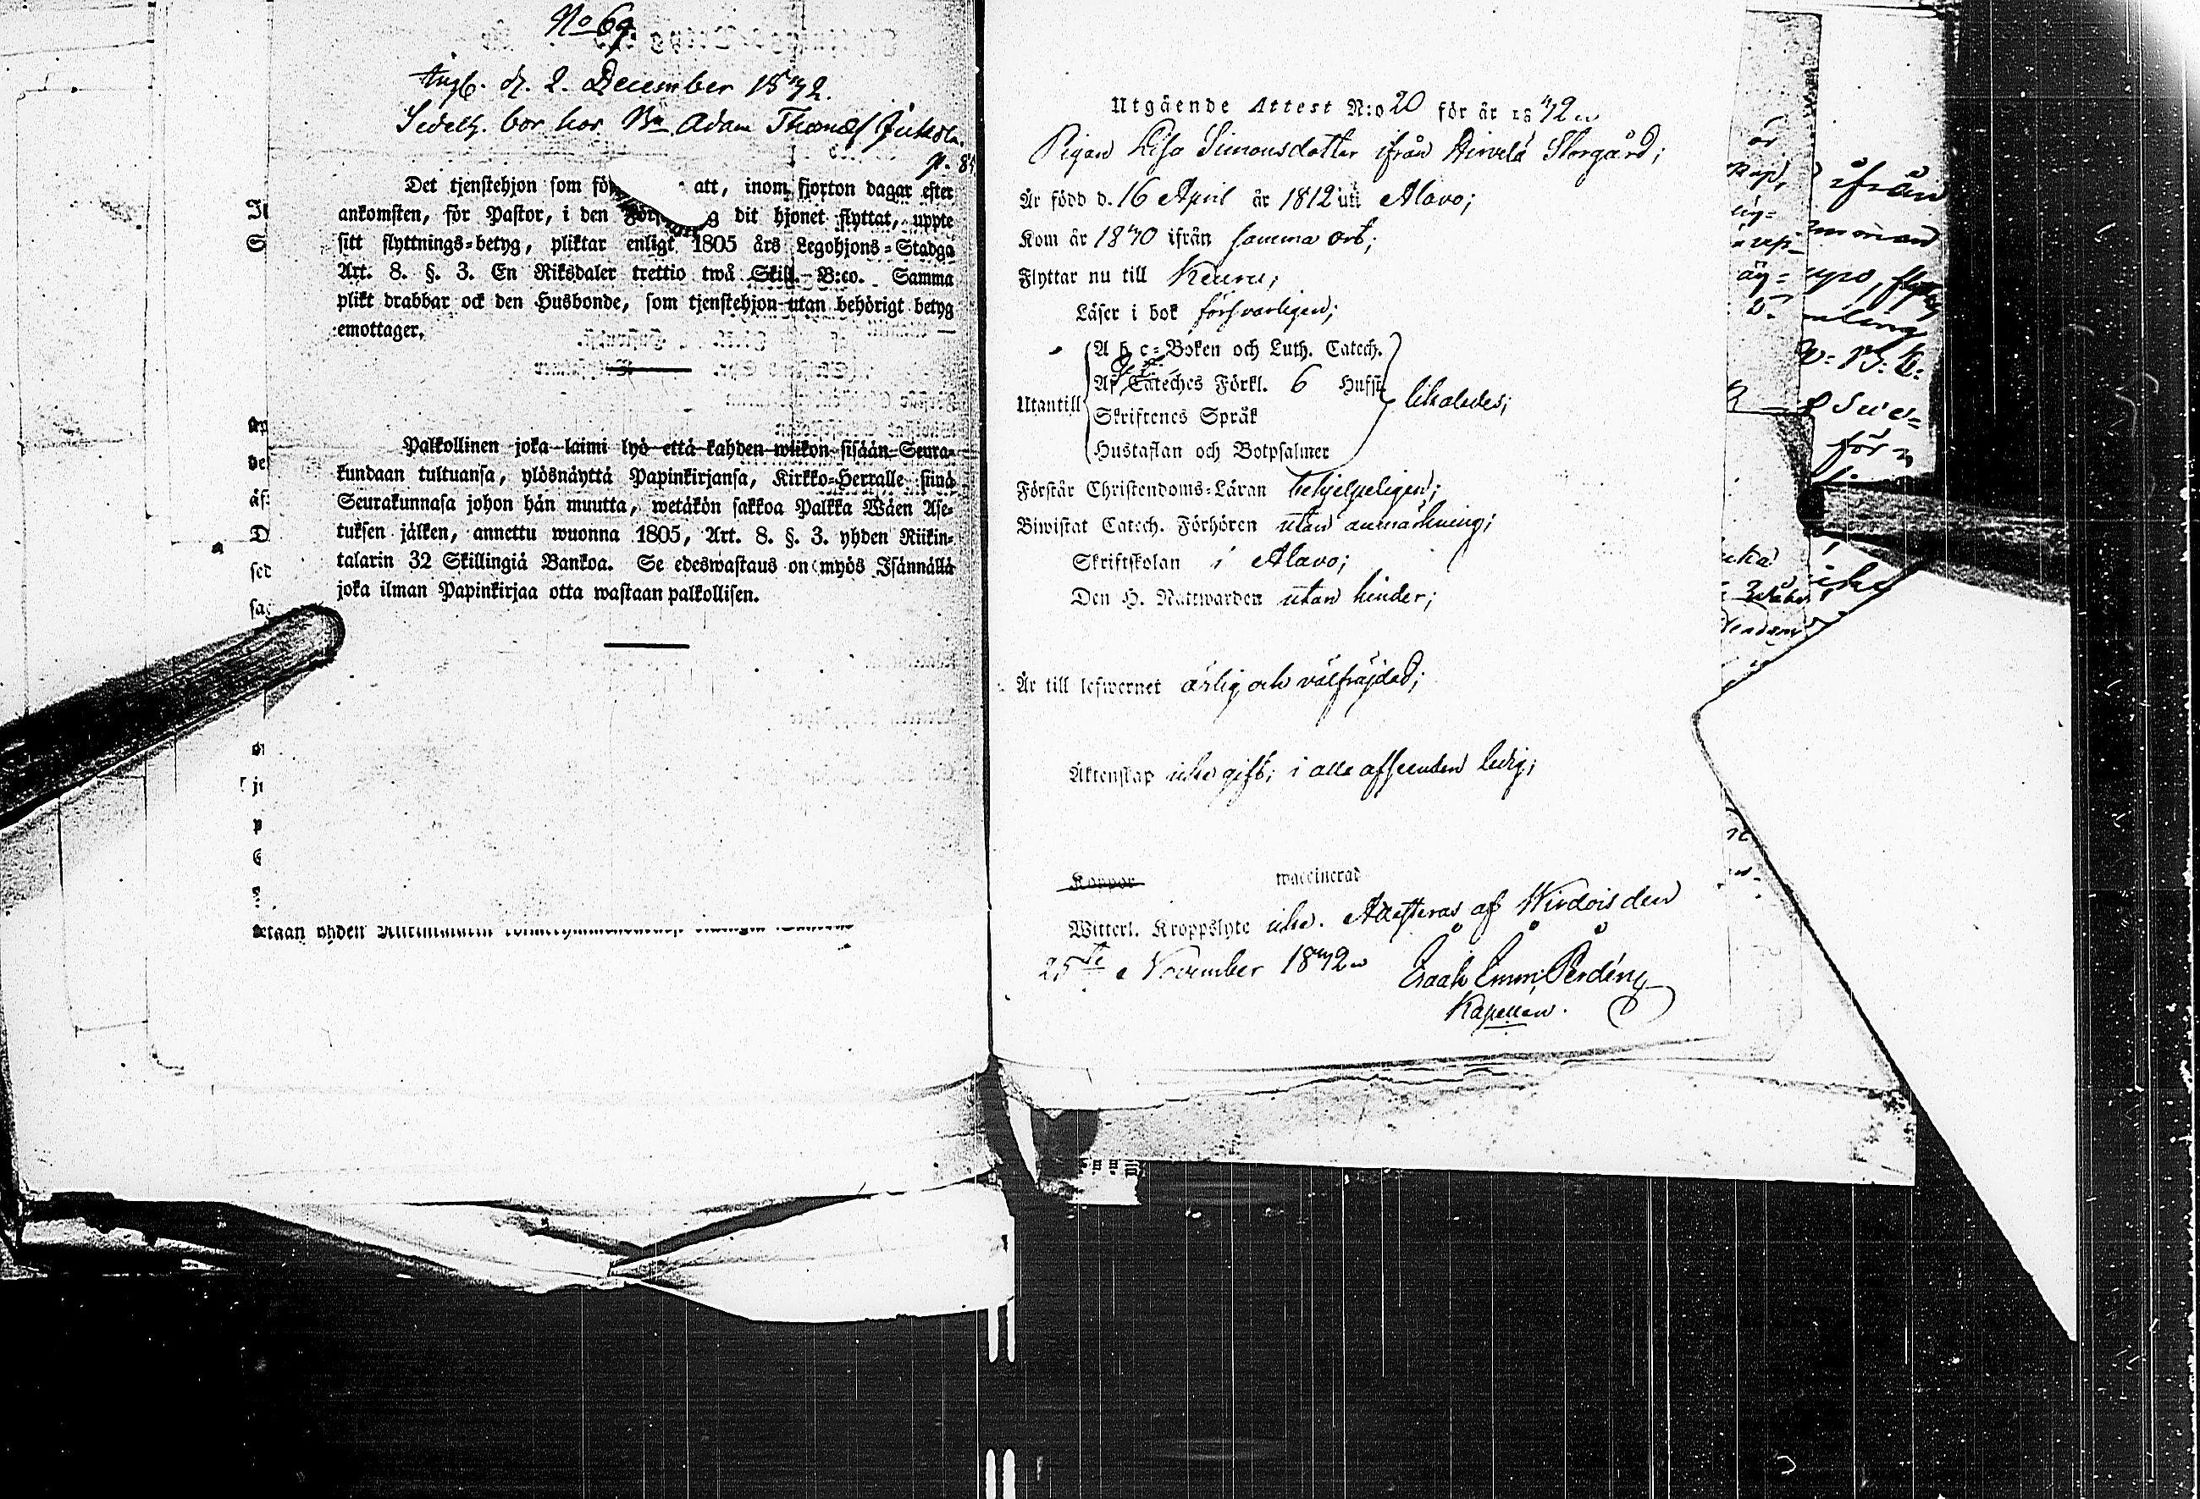 No 69.
d. 2. December 1842.
bor hos Bn Adam Thomass Jukola.
p. 84
Det tjenstehjon som att, inom fjorton dagar efter
ankomsten, för Pastor, i den dit hjonet flyttat, uppte
sitt flyttnings-betyg, pliktar enligt 1805 års Legohjons-Stadga
Art. 8. §. 3. En Riksdaler trettio twå Skill. B:co. Samma
plikt drabbar ock den Husbonde, som tjenstehjon utan behörigt betyg
emottager.
Palkollinen joka laimi lyö että kahden wiikon sisään Seura-
kundaan tultuansa, ylösnäyttä Papinkirjansa, Kirkko-Herralle siinä
Seurakunnasa johon hän muutta, wetäkön sakkoa Palkka Wäen Ase-
tuksen jälken, annettu wuonna 1805, Art. 8. §. 3. yhden Riikin-
talarin 32 Skillingiä Bankoa. Se edeswastaus on myös Isännällä
joka ilman Papinkirjaa otta wastaan palkollisen.
Utgående Attest N:o 20 för år 1842
Pigan Lisa Simonsdotter ifrån Hirvelä Storgård;
Är född d. 16 April år 1812 uti Alavo;
Kom år 1840 ifrån samma ort;
Flyttar nu till Keuru;
Läser i bok försvarligen;
A b c-Boken och Luth. Catech.
Af Cateches Förkl. 6 Hufst.
Utantill likaledes;
Skriftenes Språk
Hustaflan och Botpsalmer
Förstår Christendoms-Läran behjelpeligen;
Biwistat Catech. Förhören utan anmärkning;
Skriftskolan i Alavo;
Den H. Nattwarden utan hinder;
Är till lefwernet ärlig och välfräjdad;
Äktenskap icke gift; i alla afseenden ledig;
Koppor waccinerad
Witterl. Kroppslyte icke. Attesteras af Wirdois den
25te November 1842
Isaak Emm: Perdén
Kapellan.